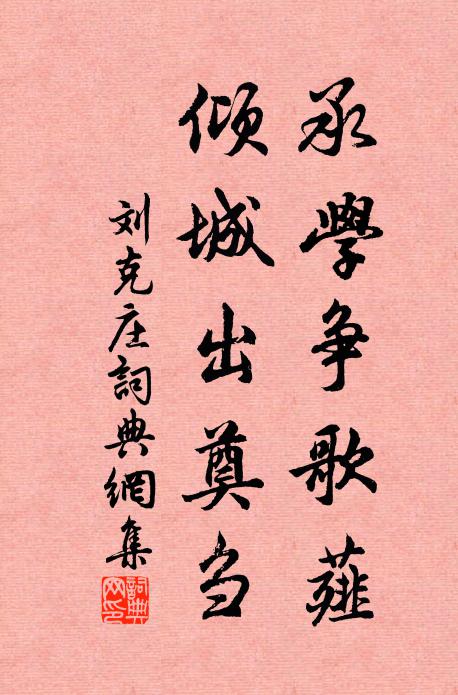 承學争歌薤
傾城出奠刍
刘克庄詞典網集
詞典网印